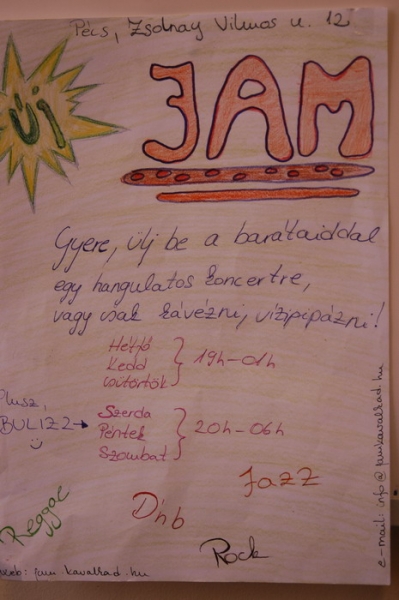 Pécs, Zsolnay Vilmos u. 12
Új
JAM
Gyere, ülj be a barátaiddal
egy hangulatos koncertre,
vagy csak kávézni, vízipipázni!
Hétfő
Kedd
csütörtök
19h-01h
Plusz,
BULIZZ
Szerda
Péntek
Szombat
20h-06h
Jazz
Reggae
D'nb
Rock
web: jam.kavalkad.hu
e-mail: info@jamkavalkad.hu